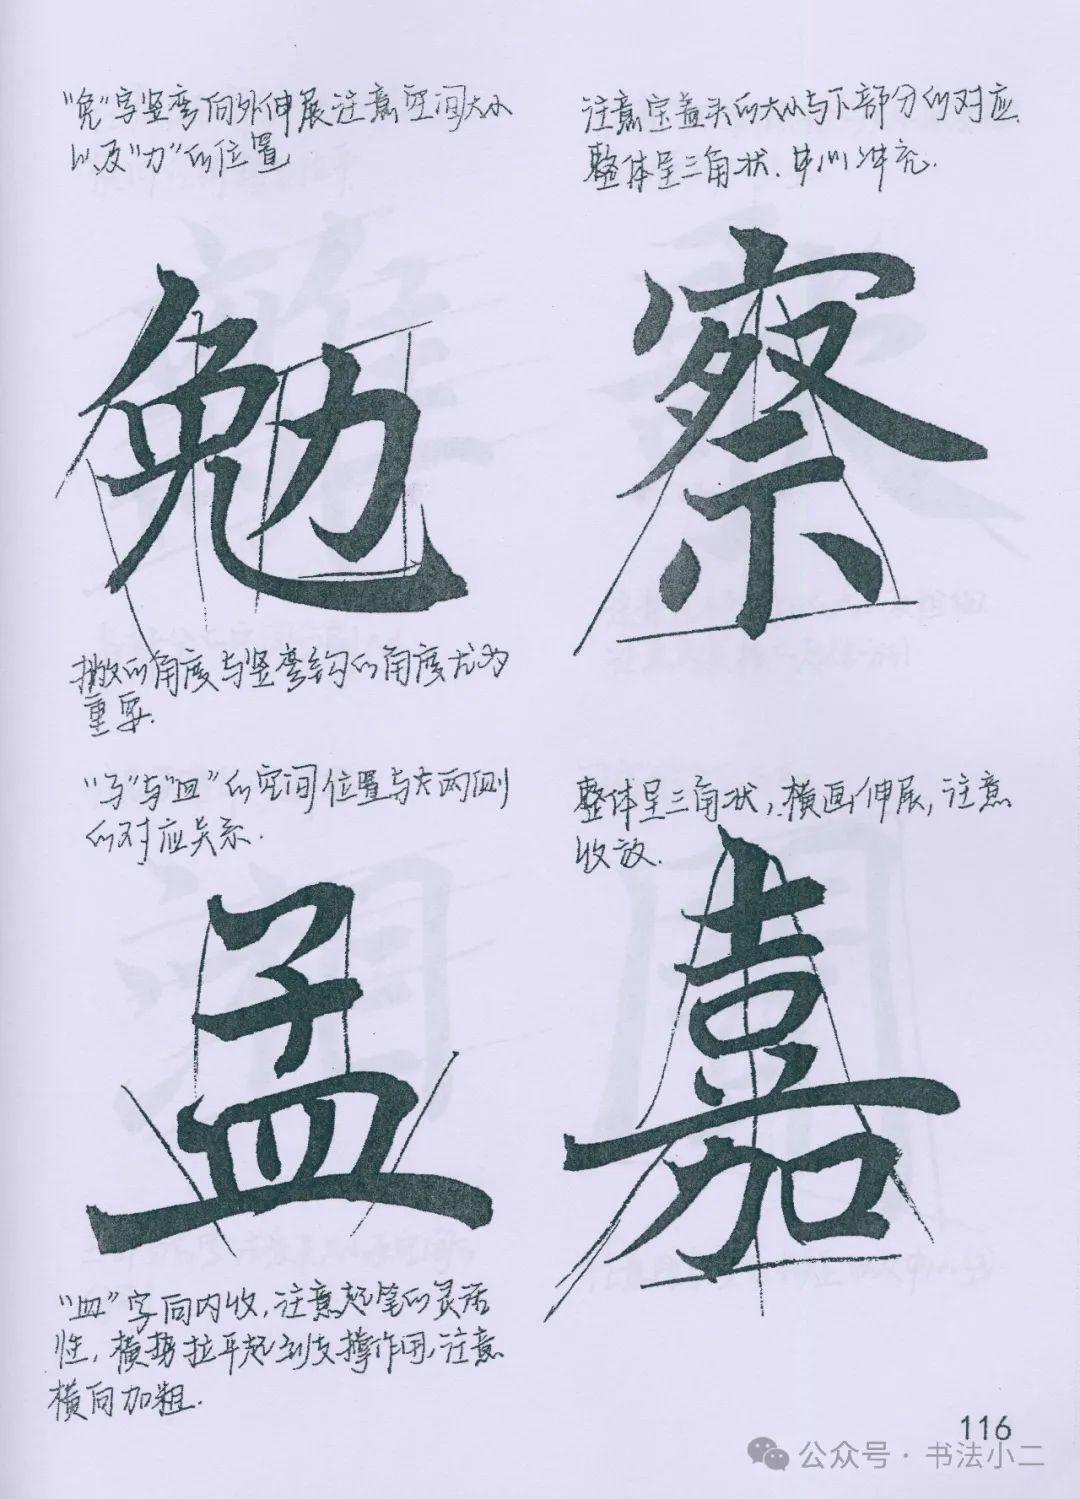 "免"字竖弯向外伸展注意空间大小
以及"力"的位置
勉
撇的角度与竖弯钩的角度尤为
重要.
注意宝盖头的大小与下部分的对应.
整体呈三角状.中心冲充.
察
"子"与"皿"的空间位置与左两侧
的对应关系.
孟
"皿"字向内收,注意起笔的灵活
性,横势拉平起到支撑作用,注意
横向加粗.
整体呈三角状,横画伸展,注意
收放.
嘉
116
公众号·书法小二